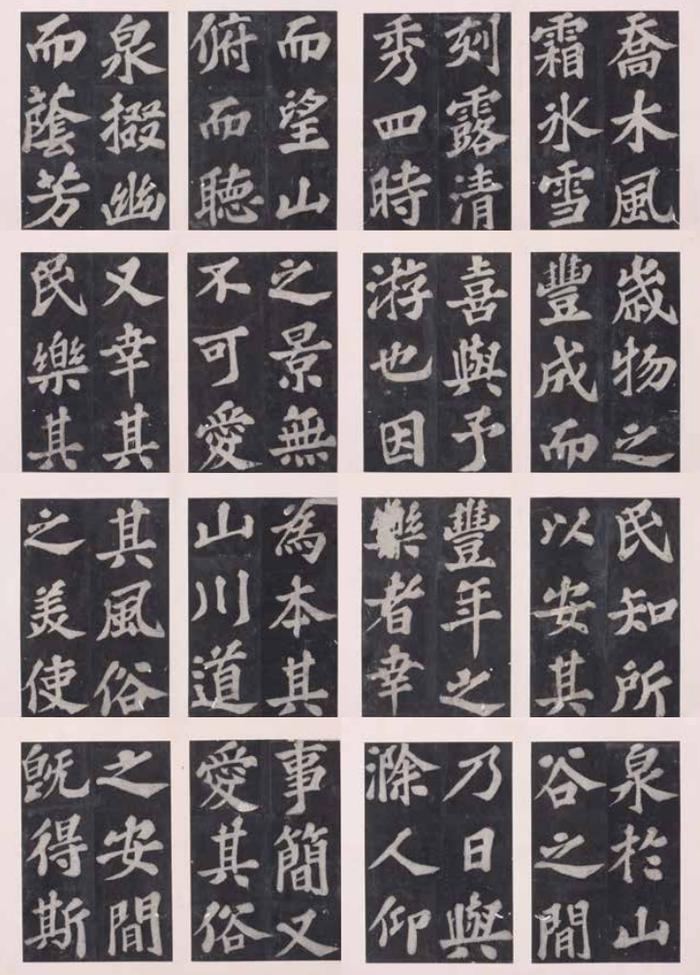 而望山
俯而聽
泉掇幽
而蔭芳
喬木風
霜氷雪
刻露清
秀四時
之景無
不可愛
又幸其
民樂其
歲物之
豐成而
喜與予
游也因
為本其
山川道
其風俗
之美使
民知所
以安其
豐年之
樂者幸
事簡又
愛其俗
之安間
既得斯
泉於山
谷之間
乃日與
滁人仰